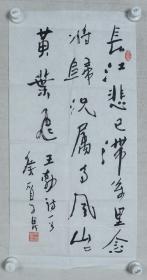 長江悲已滯萬里念
將歸況屬高風山山
黃葉飛
王勃詩一首